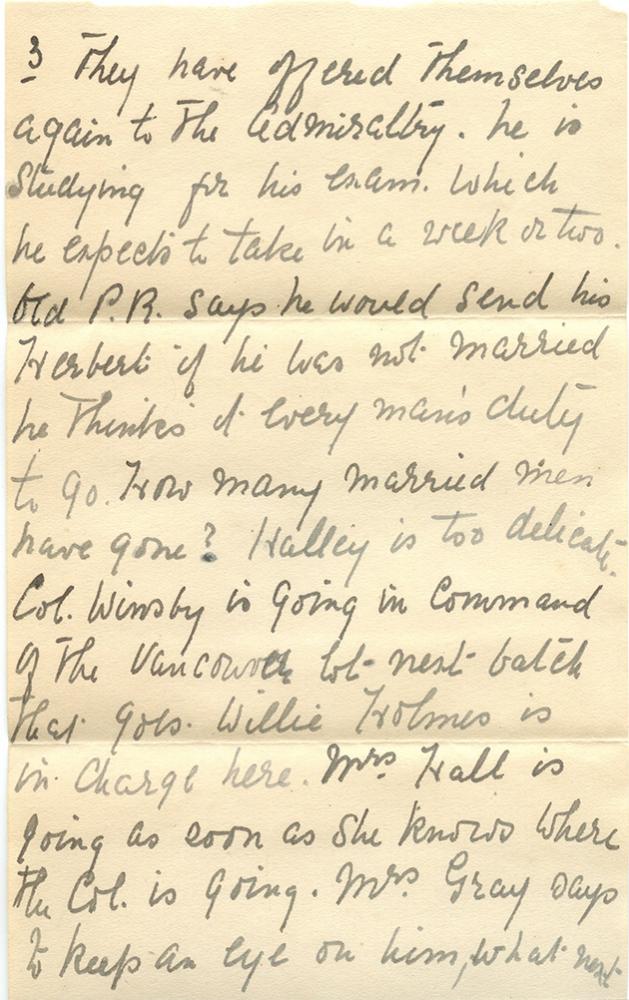 3 They have offered themselves
again to the Admiralty. he is
Studying for his exam. which
he expects to take in a week or two.
Old P.R. says he would send his
Herbert if he was not married
he thinks it every man's duty
to go. How many married men
have gone? Halley is too delicate.
Col. Winsby is going in command
of the Vancouver lot next batch
that goes. Willie Holmes is
in charge here. Mrs Hall is
going as soon as she knows where
the Col. is going. Mrs Gray says
to keep an eye on him, what next